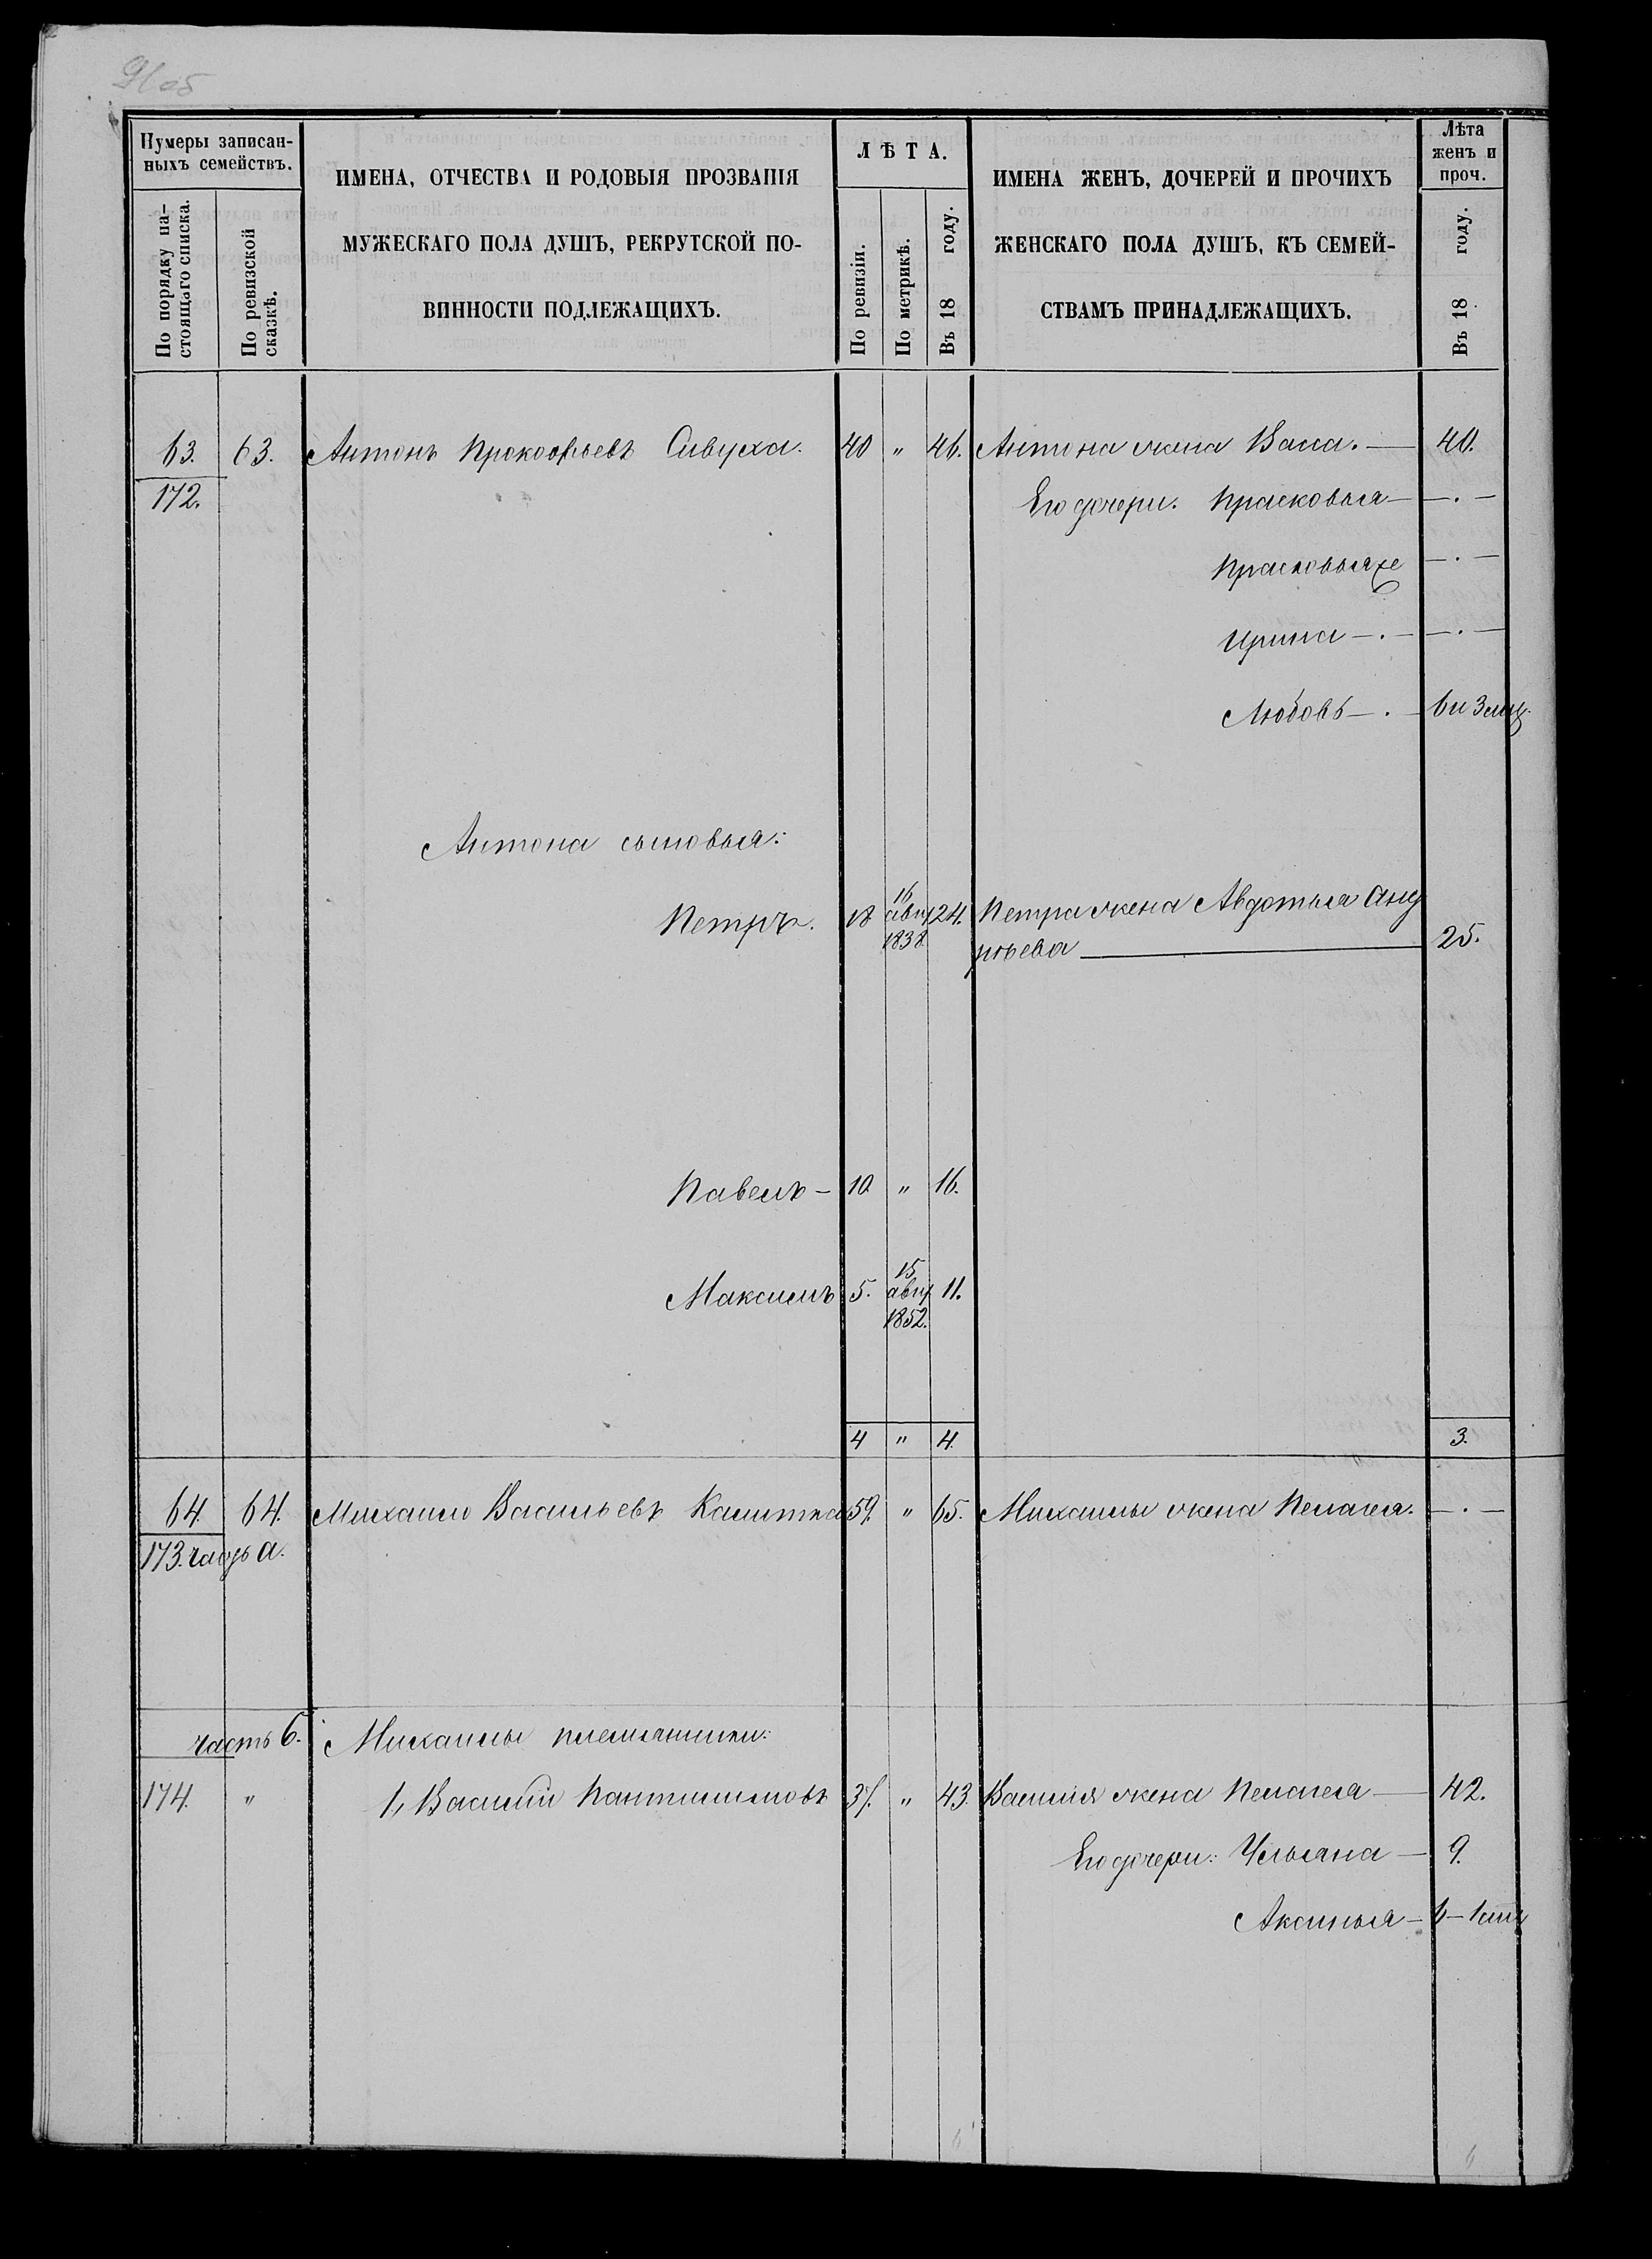 91об
Нумеры записан-
ныхъ семействъ.
По порядку на-
стоящаго списка.
По ревизской
сказкѣ.
ИМЕНА, ОТЧЕСТВА И РОДОВЫЯ ПРОЗВАНІЯ
МУЖЕСКАГО ПОЛА ДУШЪ, РЕКРУТСКОЙ ПО-
ВИННОСТИ ПОДЛЕЖАЩИХЪ.
ЛѢТА.
По ревизіи.
По метрикѣ.
Въ 18 году.
ИМЕНА ЖЕНЪ, ДОЧЕРЕЙ И ПРОЧИХЪ
ЖЕНСКАГО ПОЛА ДУШЪ, КЪ СЕМЕЙ-
СТВАМЪ ПРИНАДЛЕЖАЩИХЪ.
Лѣта
женъ и
проч.
Въ 18 году.
63. 63. Антонъ Прокофьевъ Сивуха. 40 " 46. Антона жена Васа. — 40.
172. Его дочери: Прасковья — . —
Прасковья же — . —
Ирина — . — — . —
Любовь — . — 6 и 3 мц.
Антона сыновья:
Петръ. 18 16 авг 1838 24. Петра жена Авдотья Анд
рѣева — 25.
Павелъ — 10. " 16.
Максимъ 5. 15 авг 1852. 11.
4 " 4. 3.
64. 64. Михаило Васильевъ Калитка 59. " 65. Михаилы жена Пелагея. — . —
173. часть а.
часть б. Михаилы племянники:
174. " 1, Василій Пантилимовъ 37. " 43. Василія жена Пелагея — 42.
Его дочери: Ульяна — 9.
Аксинья — 6 — 1 мц